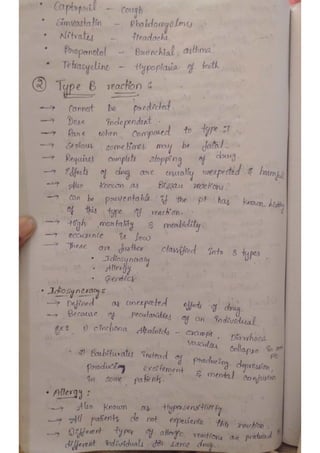 • Captopril - Cough
• Simvastatin - Rhabdomyelosis
• Nitrates - Headache
• Propanolol - Bronchial asthma
• Tetracycline - Hypoplasia of teeth
② Type B reaction :
→ Cannot be predicted
→ Dose Independent.
→ Rare when Compared to type I
→ Serious sometimes may be fatal.
→ Requires complete stopping of drug
→ Effects of drug are usually unexpected & harmful
→ Also known as Bizzare reaction.
→ Can be preventable if the pt has known history
of this type of reaction.
→ High mortality & morbidity.
→ occurence is low
→ These are further classified into 3 types
• Idiosyncrasy
• Allergy
• Genetics
• Idiosyncrasy :
→ Defined as unexpected effects of drug.
→ Because of peculiarities of an individual
1) cinchona Alkaloids - cramps, Diarrhoea
vascular collapse in
2) Barbiturates instead of producing depression
producing excitement & mental confusion
in some patients.
• Allergy :
→ Also known as Hypersensitivity
→ All patients do not experience this reaction.
→ Different types of allergic reactions are produced in
different individuals for same drug.